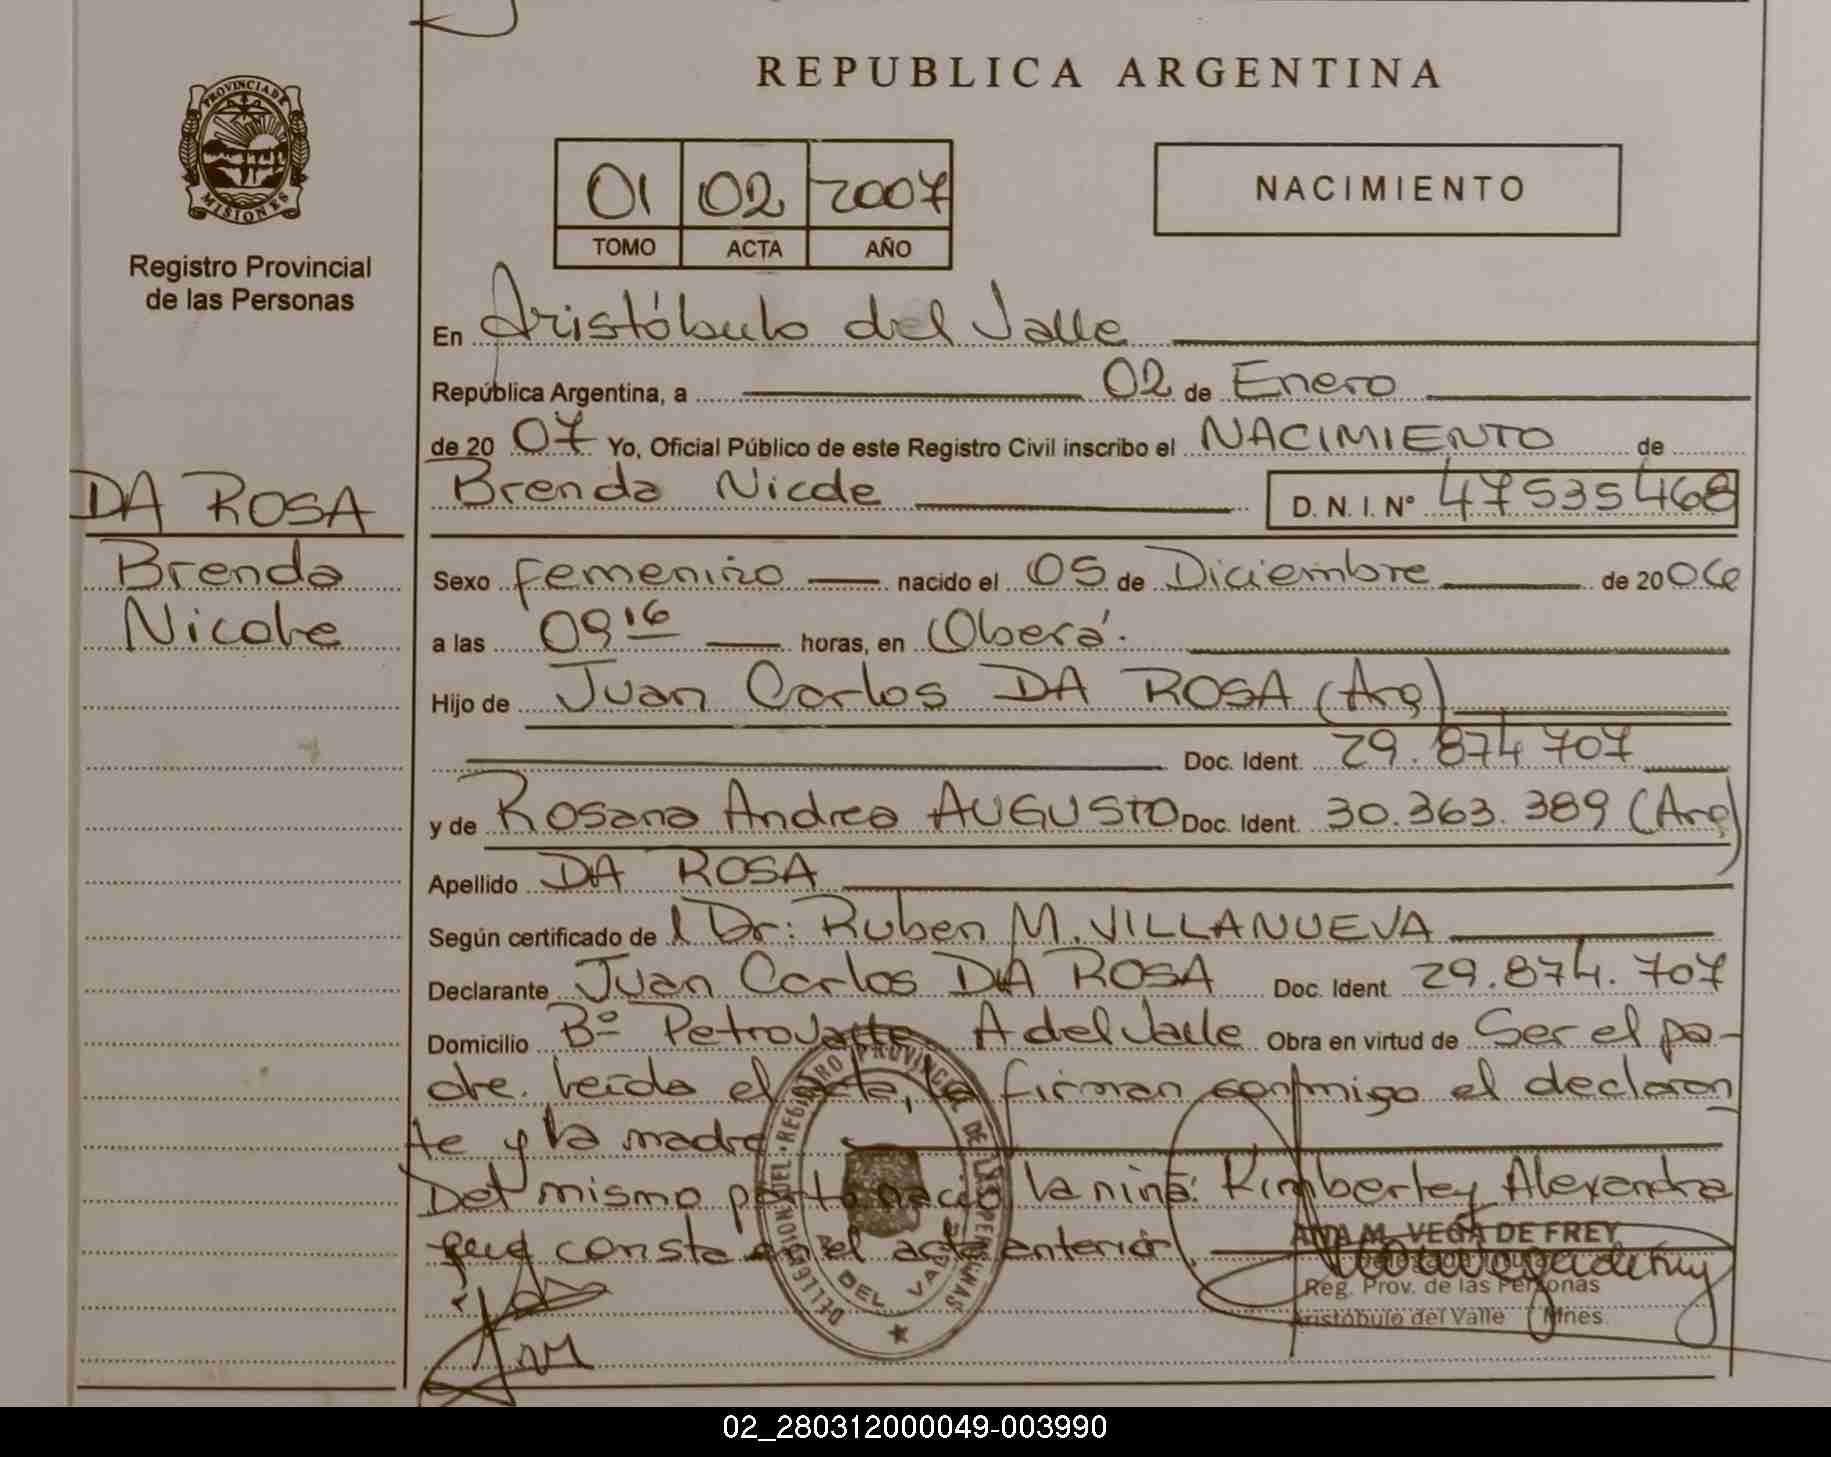 REPUBLICA ARGENTINA
PROVINCIA DE
MISIONES
Registro Provincial
de las Personas
01 02 2007
TOMO ACTA AÑO
NACIMIENTO
En Aristóbulo del Valle
República Argentina, a 02 de Enero
de 20 07 Yo, Oficial Público de este Registro Civil inscribo el NACIMIENTO de
Brenda Nicole D. N. I. Nº 47535468
DA ROSA
Brenda
Nicole
Sexo femenino nacido el 05 de Diciembre de 20 06
a las 09 16 horas, en Oberá.
Hijo de Juan Carlos DA ROSA (Arg)
Doc. Ident. 29.874 707
y de Rosana Andrea AUGUSTO Doc. Ident. 30.363.389 (Arg)
Apellido DA ROSA
Según certificado de l Dr: Ruben M. VILLANUEVA
Declarante Juan Carlos DA ROSA Doc. Ident 29.874.707
Domicilio Bº A del Valle Obra en virtud de Ser el pa-
dre. Leída el acta, la firman conmigo el declaran
te y la madre
Del mismo parto nació la niña: Kimberley Alexandra
que consta en el acta anterior
REGISTRO PROVINCIAL DE LAS PERSONAS
DEL VALLE
ANA M. VEGA DE FREY
Reg. Prov. de las Personas
Aristóbulo del Valle Mnes.
02_280312000049-003990